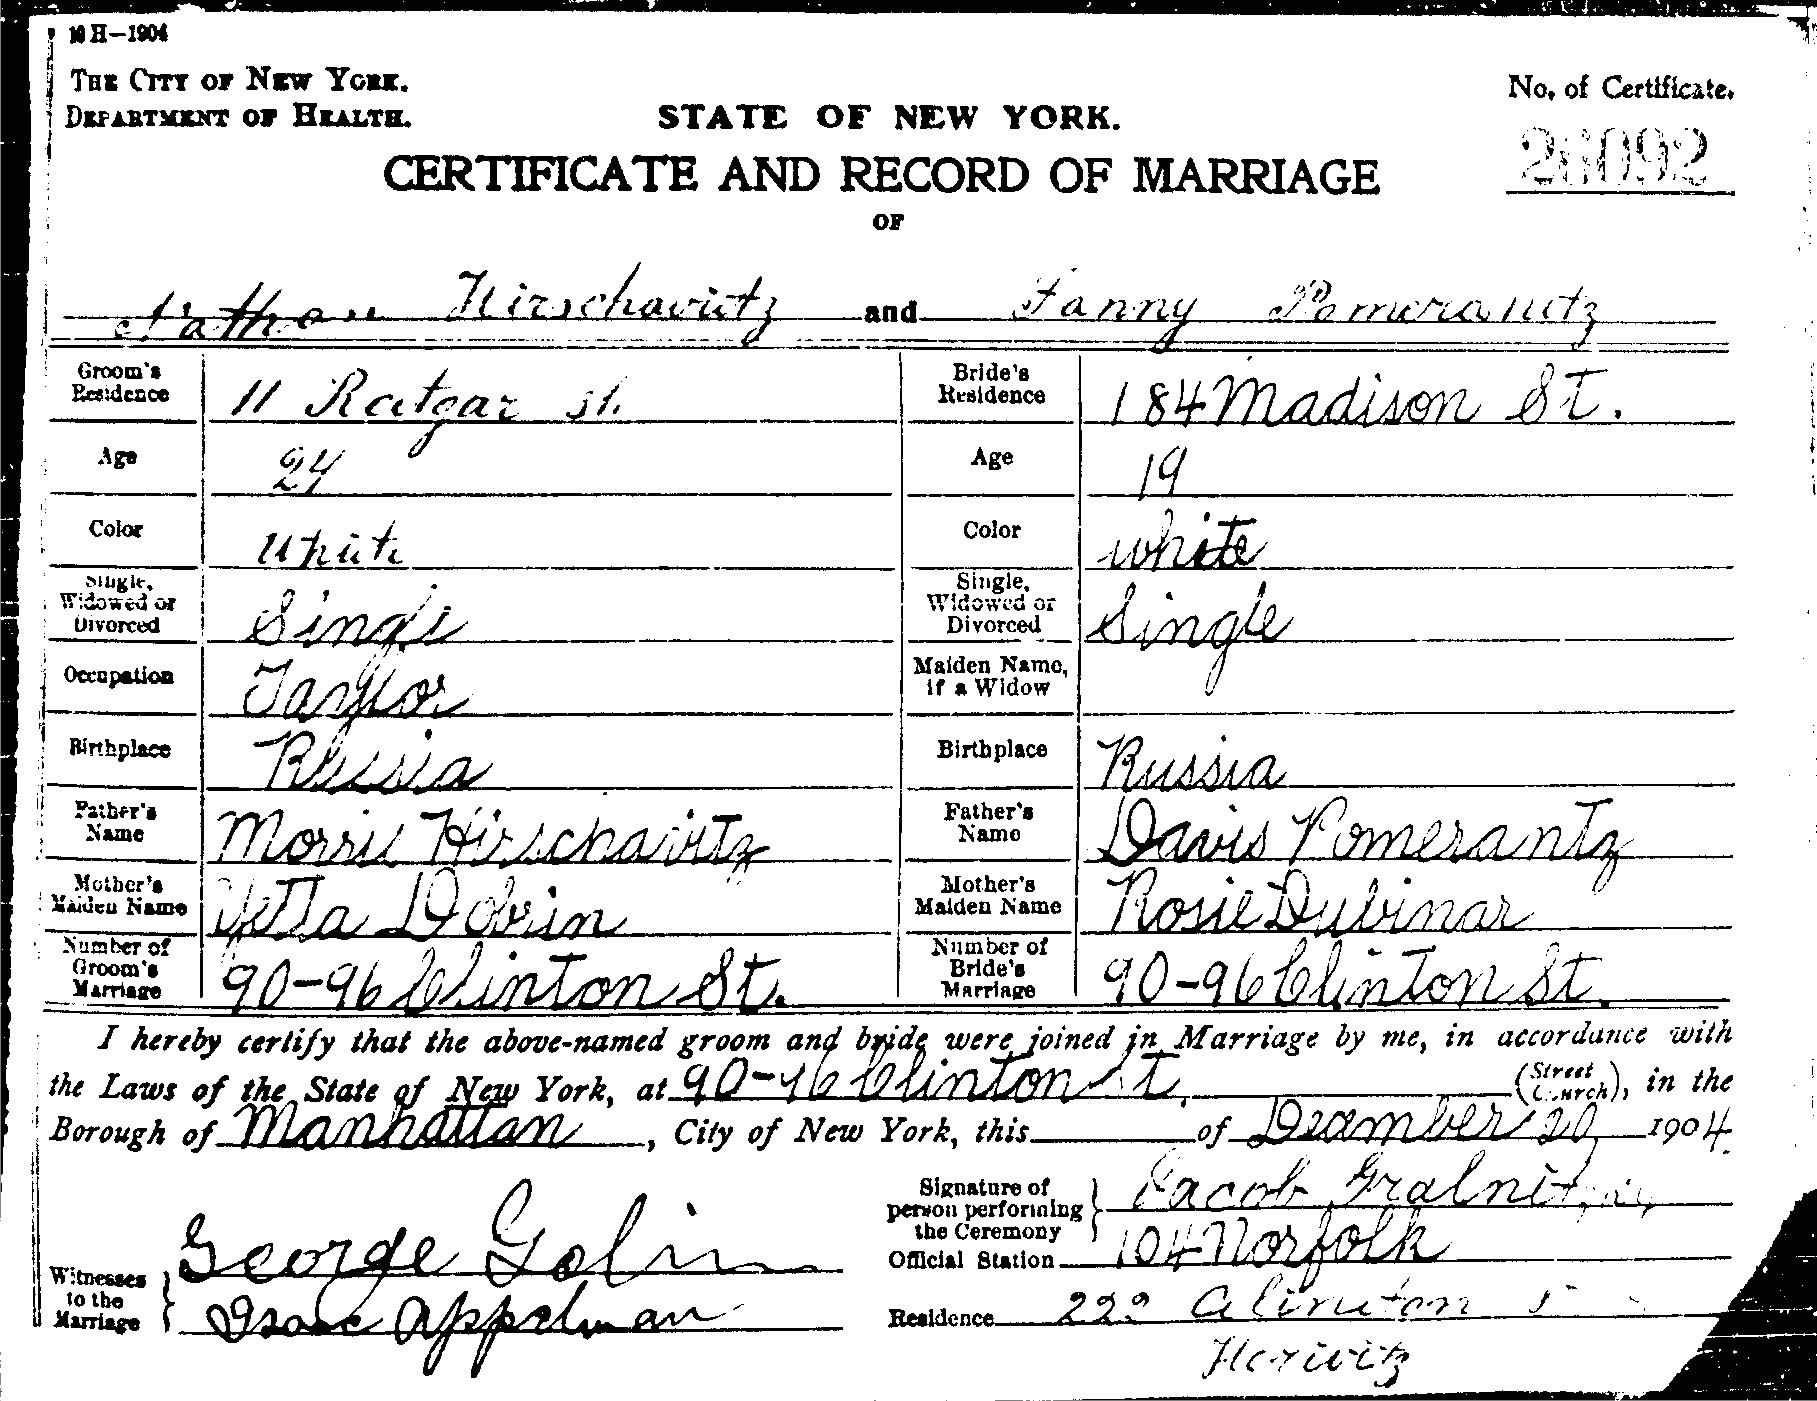 10 H—1904
THE CITY OF NEW YORK.
DEPARTMENT OF HEALTH.
STATE OF NEW YORK.
No. of Certificate.
26092
CERTIFICATE AND RECORD OF MARRIAGE
OF
Nathan Hirschavitz and Fanny Pomerantz
Groom's Residence 11 Ratgar st. Bride's Residence 184 Madison St.
Age 24 Age 19
Color White Color white
Single, Widowed or Divorced Single Single, Widowed or Divorced Single
Occupation Taylor Maiden Name, if a Widow
Birthplace Russia Birthplace Russia
Father's Name Morris Hirschavitz Father's Name Davis Pomerantz
Mother's Maiden Name Yetta Dobrin Mother's Maiden Name Rosie Dubinar
Number of Groom's Marriage 90-96 Clinton St. Number of Bride's Marriage 90-96 Clinton St.
I hereby certify that the above-named groom and bride were joined in Marriage by me, in accordance with
the Laws of the State of New York, at 90-96 Clinton St. (Street Church), in the
Borough of Manhattan, City of New York, this of December 20 1904.
Signature of person performing the Ceremony Jacob
Official Station 104 Norfolk
Witnesses to the Marriage George Golin
Isaac Appelman
Residence Clinton
Horwitz